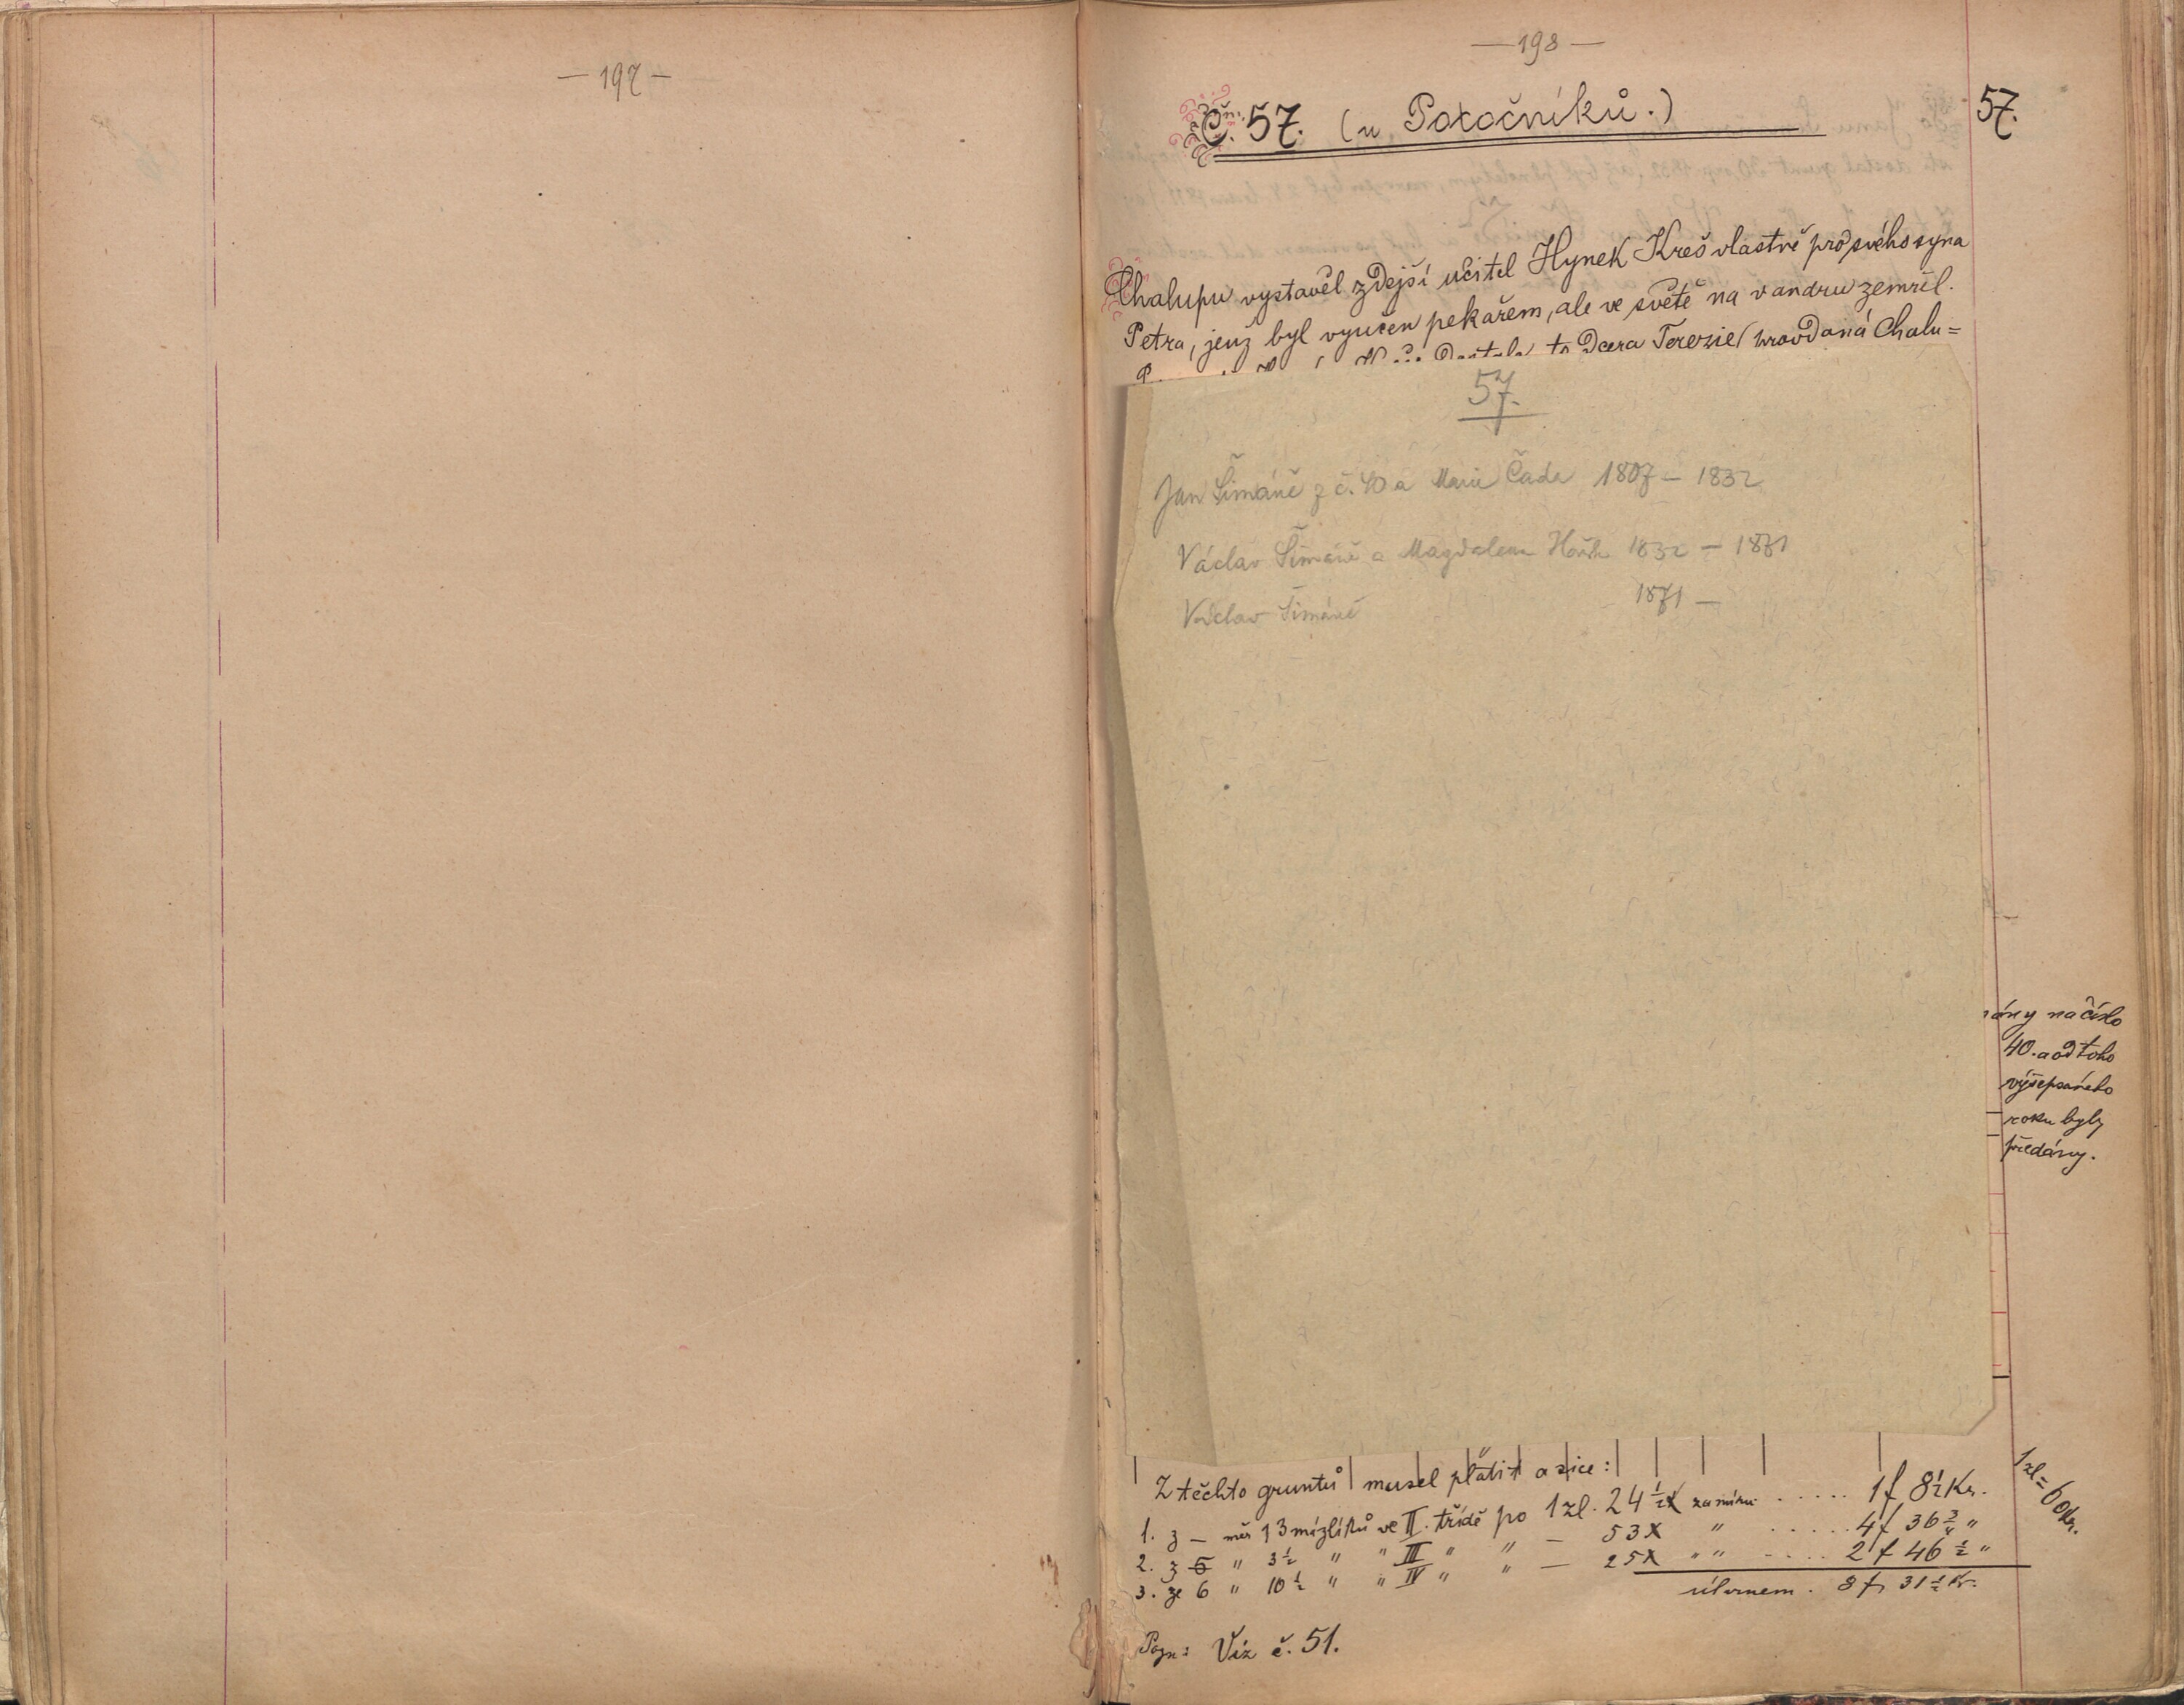 — 197 —
— 198 —
Č. 57. (u Potočníků.)
57.
Chalupu vystavěl zdejší učitel Hynek Kreš vlastně pro svého syna
Petra, jenž byl vyučen pekařem, ale ve světě na vandru zemřel.
dcera Terezie (provdaná Chalu=
57.
Jan Šimáně z č. 40 a Marie Čada 1807 — 1832
Václav Šimáně a Magdalena 1832 — 1871
Václav Šimáně 1871 —
na číslo
40. a od toho
výšepsaného
roku byly
předány.
Z těchto gruntů musel platit a sice:
1 zl = 60 kr.
1. z — měr 13 mázlíků ve II. třídě po 1 zl. 24 ½ x za míru ..... 1 f 8 ½ Kr.
2. z 5 " 3 ½ " " III " " — 53 x " ..... 4 f 36 3/4 "
3. ze 6 " 10 ½ " " IV " " — 25 x " " ..... 2 f 46 ½ "
úhrnem. 8 f 31 ½ Kr.
Pozn: Viz č. 51.